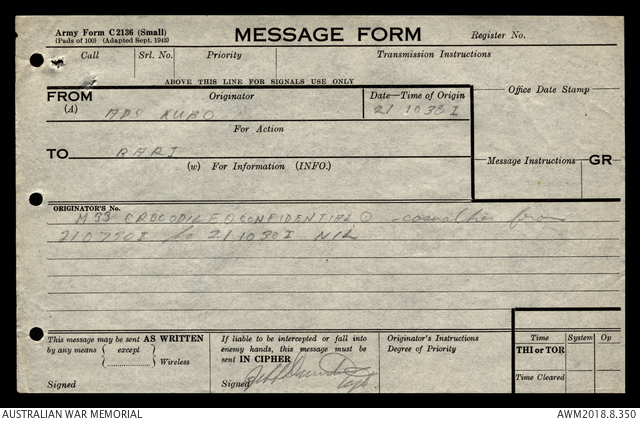 Army Form C2136 (Small)
(Pads of 100) (Adapted Sept. 1943)
MESSAGE FORM
Register No.
Call Srl. No. Priority Transmission Instructions
ABOVE THIS LINE FOR SIGNALS USE ONLY
FROM Originator Date—Time of Origin Office Date Stamp
(A) ADS KUBO 21 1038 I
For Action
TO BARI
(w) For Information (INFO.) Message Instructions GR
ORIGINATOR'S No.
M33 CROCODILE CONFIDENTIAL casualties from
to 21 1030 I NIL
This message may be sent AS WRITTEN
by any means { except } Wireless
Signed
If liable to be intercepted or fall into
enemy hands, this message must be
sent IN CIPHER
Signed Capt.
Originator's Instructions
Degree of Priority
Time System Op
THI or TOR
Time Cleared
AUSTRALIAN WAR MEMORIAL AWM2018.8.350